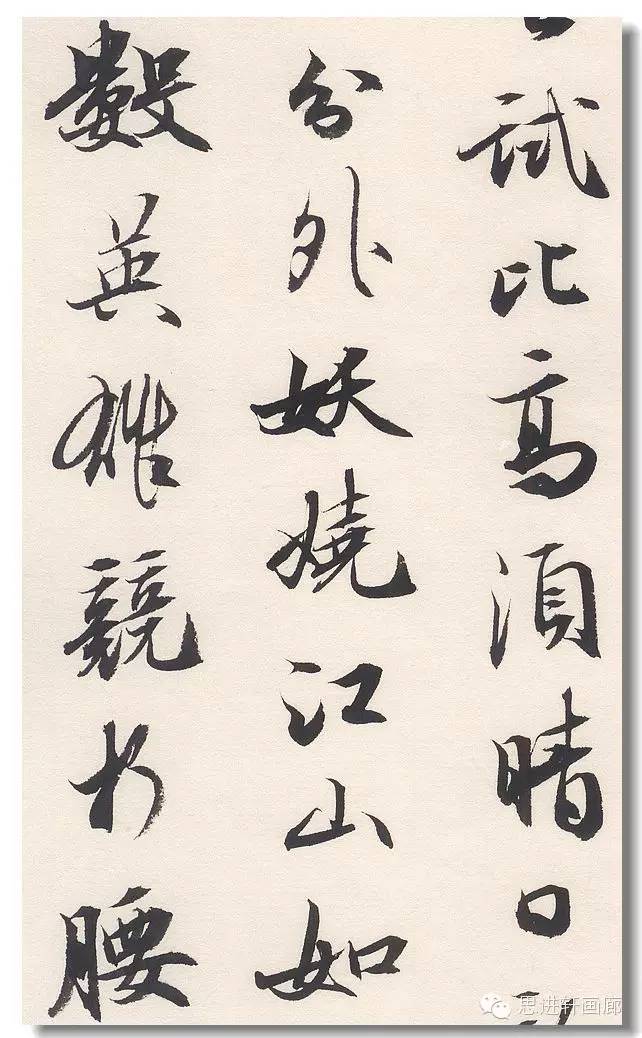 試比高須晴日
分外妖嬈江山如
數英雄競折腰
思进轩画廊